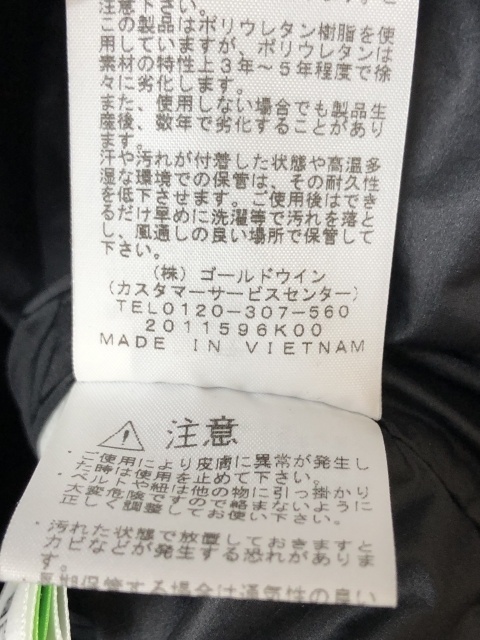 注意下さい。
この製品はポリウレタン樹脂を使
用していますが、ポリウレタンは
素材の特性上3年～5年程度で徐
々に劣化します。
また、使用しない場合でも製品生
産後、数年で劣化することがあり
ます。
汗や汚れが付着した状態や高温多
湿な環境での保管は、その耐久性
を低下させます。ご使用後はでき
るだけ早めに洗濯等で汚れを落と
し、風通しの良い場所で保管して
下さい。
(株) ゴールドウイン
(カスタマーサービスセンター)
TEL0120-307-560
2011596K00
MADE IN VIETNAM
注意
・ご使用により皮膚に異常が発生し
た時は使用を止めて下さい。
・ベルトや紐は他の物に引っ掛かり
大変危険ですので絡まないように
正しく調整してお使い下さい。
・汚れた状態で放置しておきますと
カビなどが発生する恐れがありま
す。
・長期保管する場合は通気性の良い